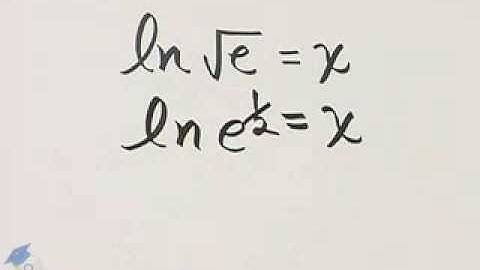 ln √e = x
ln e^½ = x